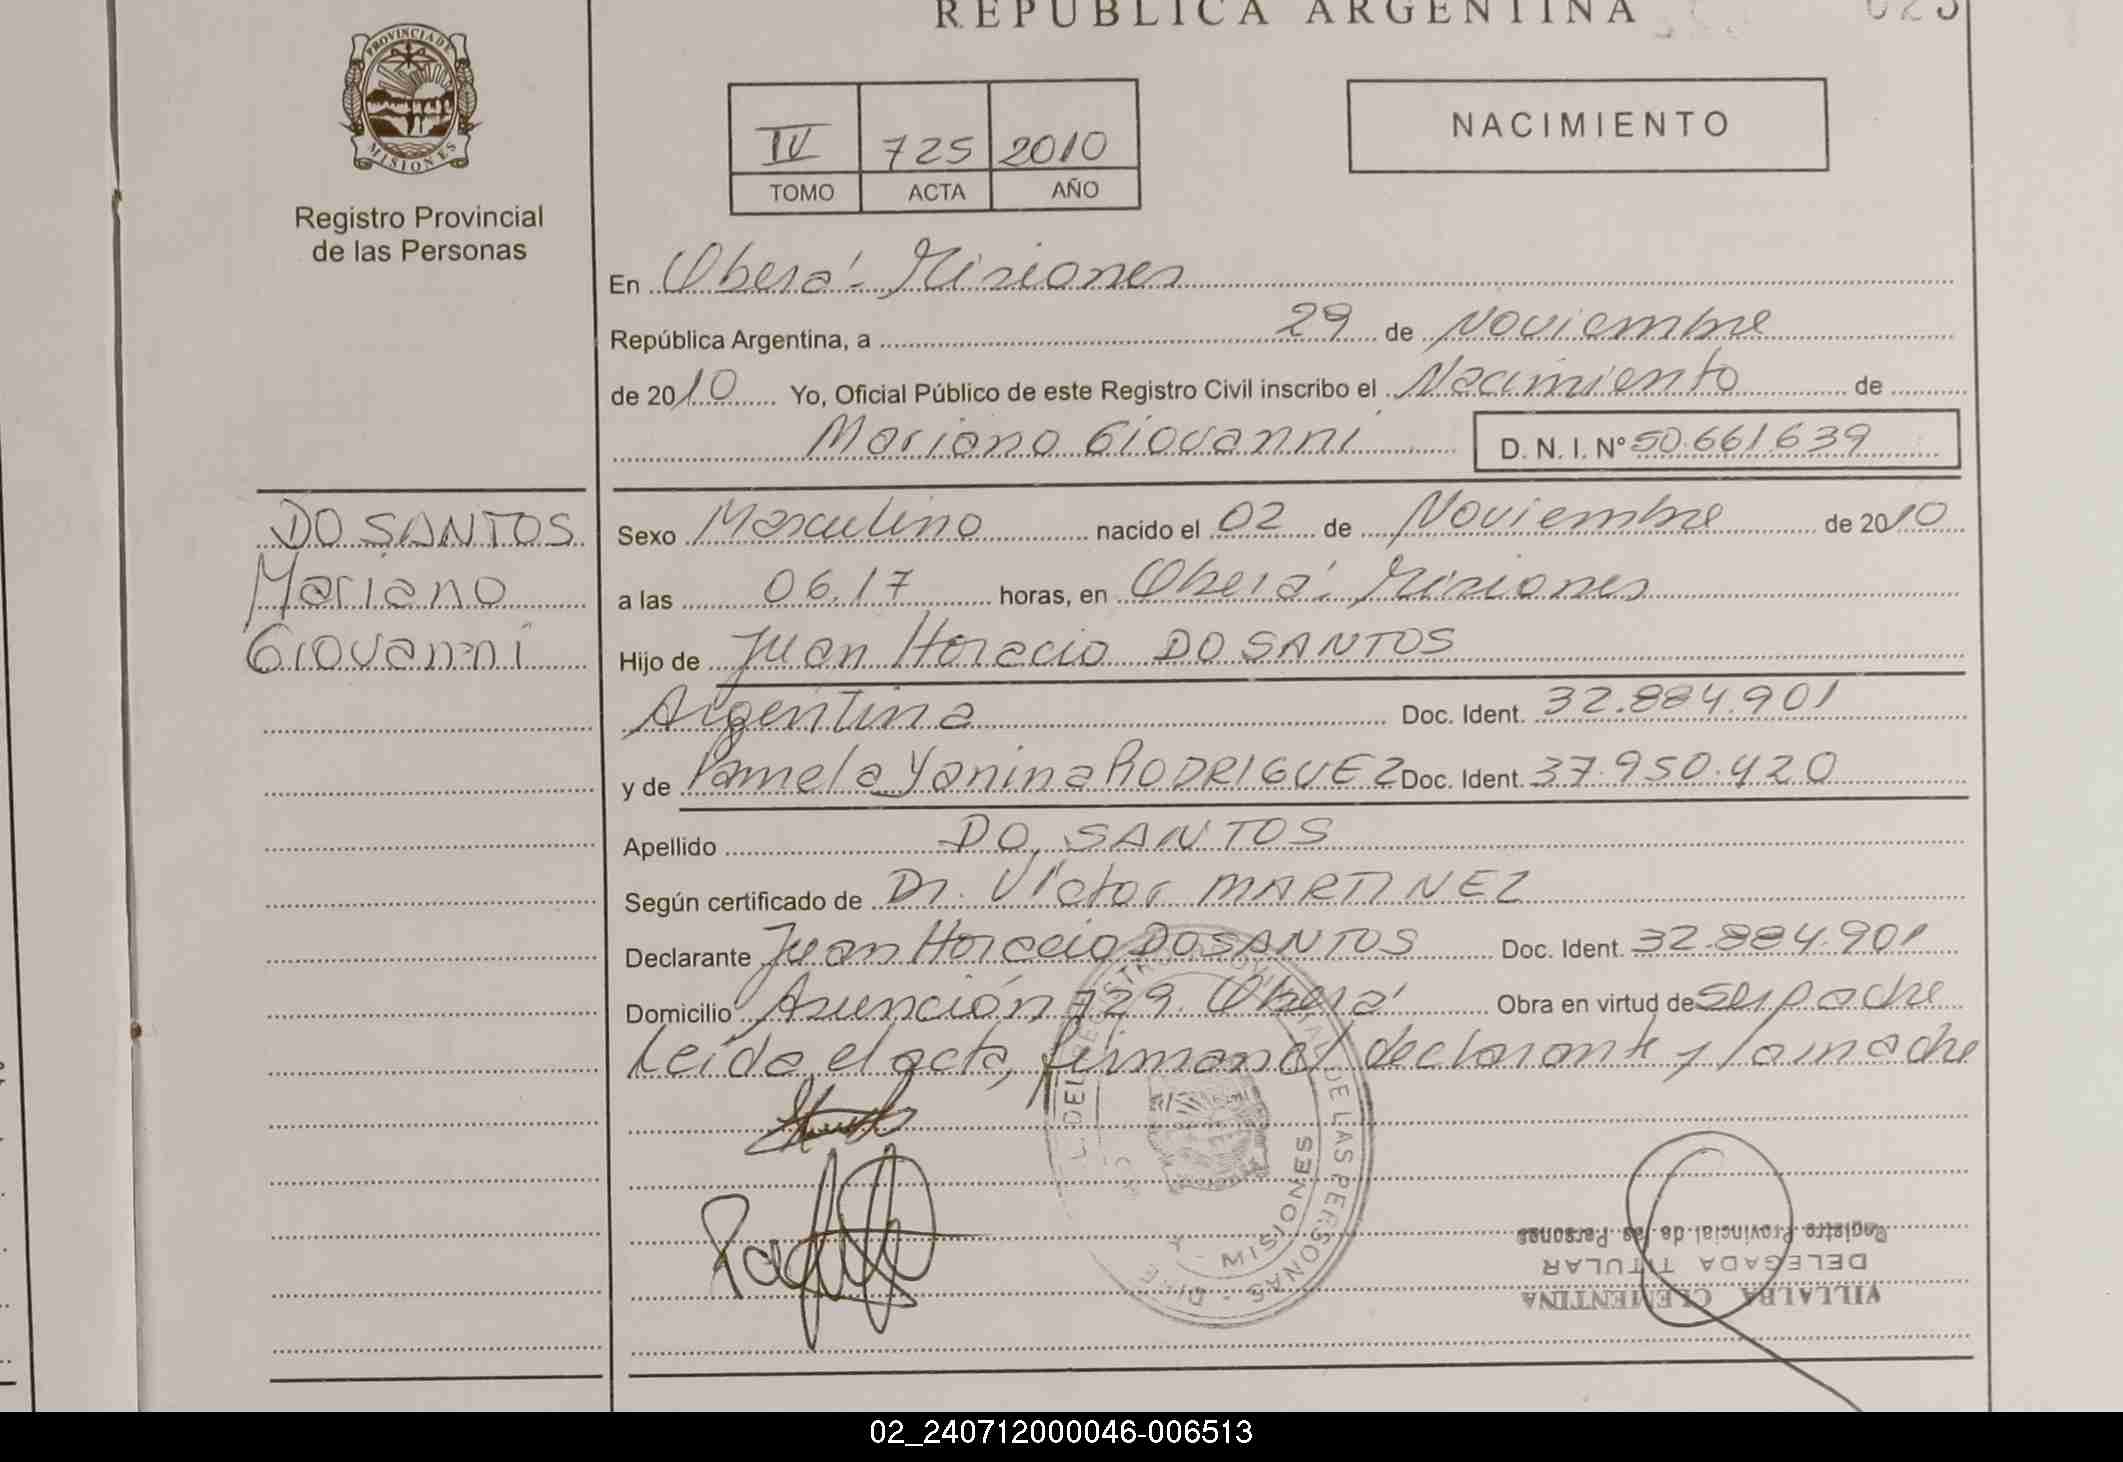 REPUBLICA ARGENTINA
PROVINCIA DE
MISIONES
Registro Provincial
de las Personas
IV 725 2010
TOMO ACTA AÑO
NACIMIENTO
En Oberá - Misiones
República Argentina, a 29 de Noviembre
de 2010 Yo, Oficial Público de este Registro Civil inscribo el Nacimiento de
Mariano Giovanni D. N. I. Nº 50.661.639
DO SANTOS
Mariano
Giovanni
Sexo Masculino nacido el 02 de Noviembre de 2010
a las 06.17 horas, en Oberá - Misiones
Hijo de Juan Horacio DO SANTOS
Argentina Doc. Ident. 32.884.901
y de Pamela Yanina RODRIGUEZ Doc. Ident. 37.950.420
Apellido DO SANTOS
Según certificado de Dr. Victor MARTINEZ
Declarante Juan Horacio DO SANTOS Doc. Ident. 32.884.901
Domicilio Asunción 729. Oberá Obra en virtud de ser padre
Leída el acta, firman el declarante y la madre
DEL REGISTRO PROVINCIAL DE LAS PERSONAS
MISIONES
Registro Provincial de las Personas
DELEGADA TITULAR
VILLALBA CLEMENTINA
02_240712000046-006513